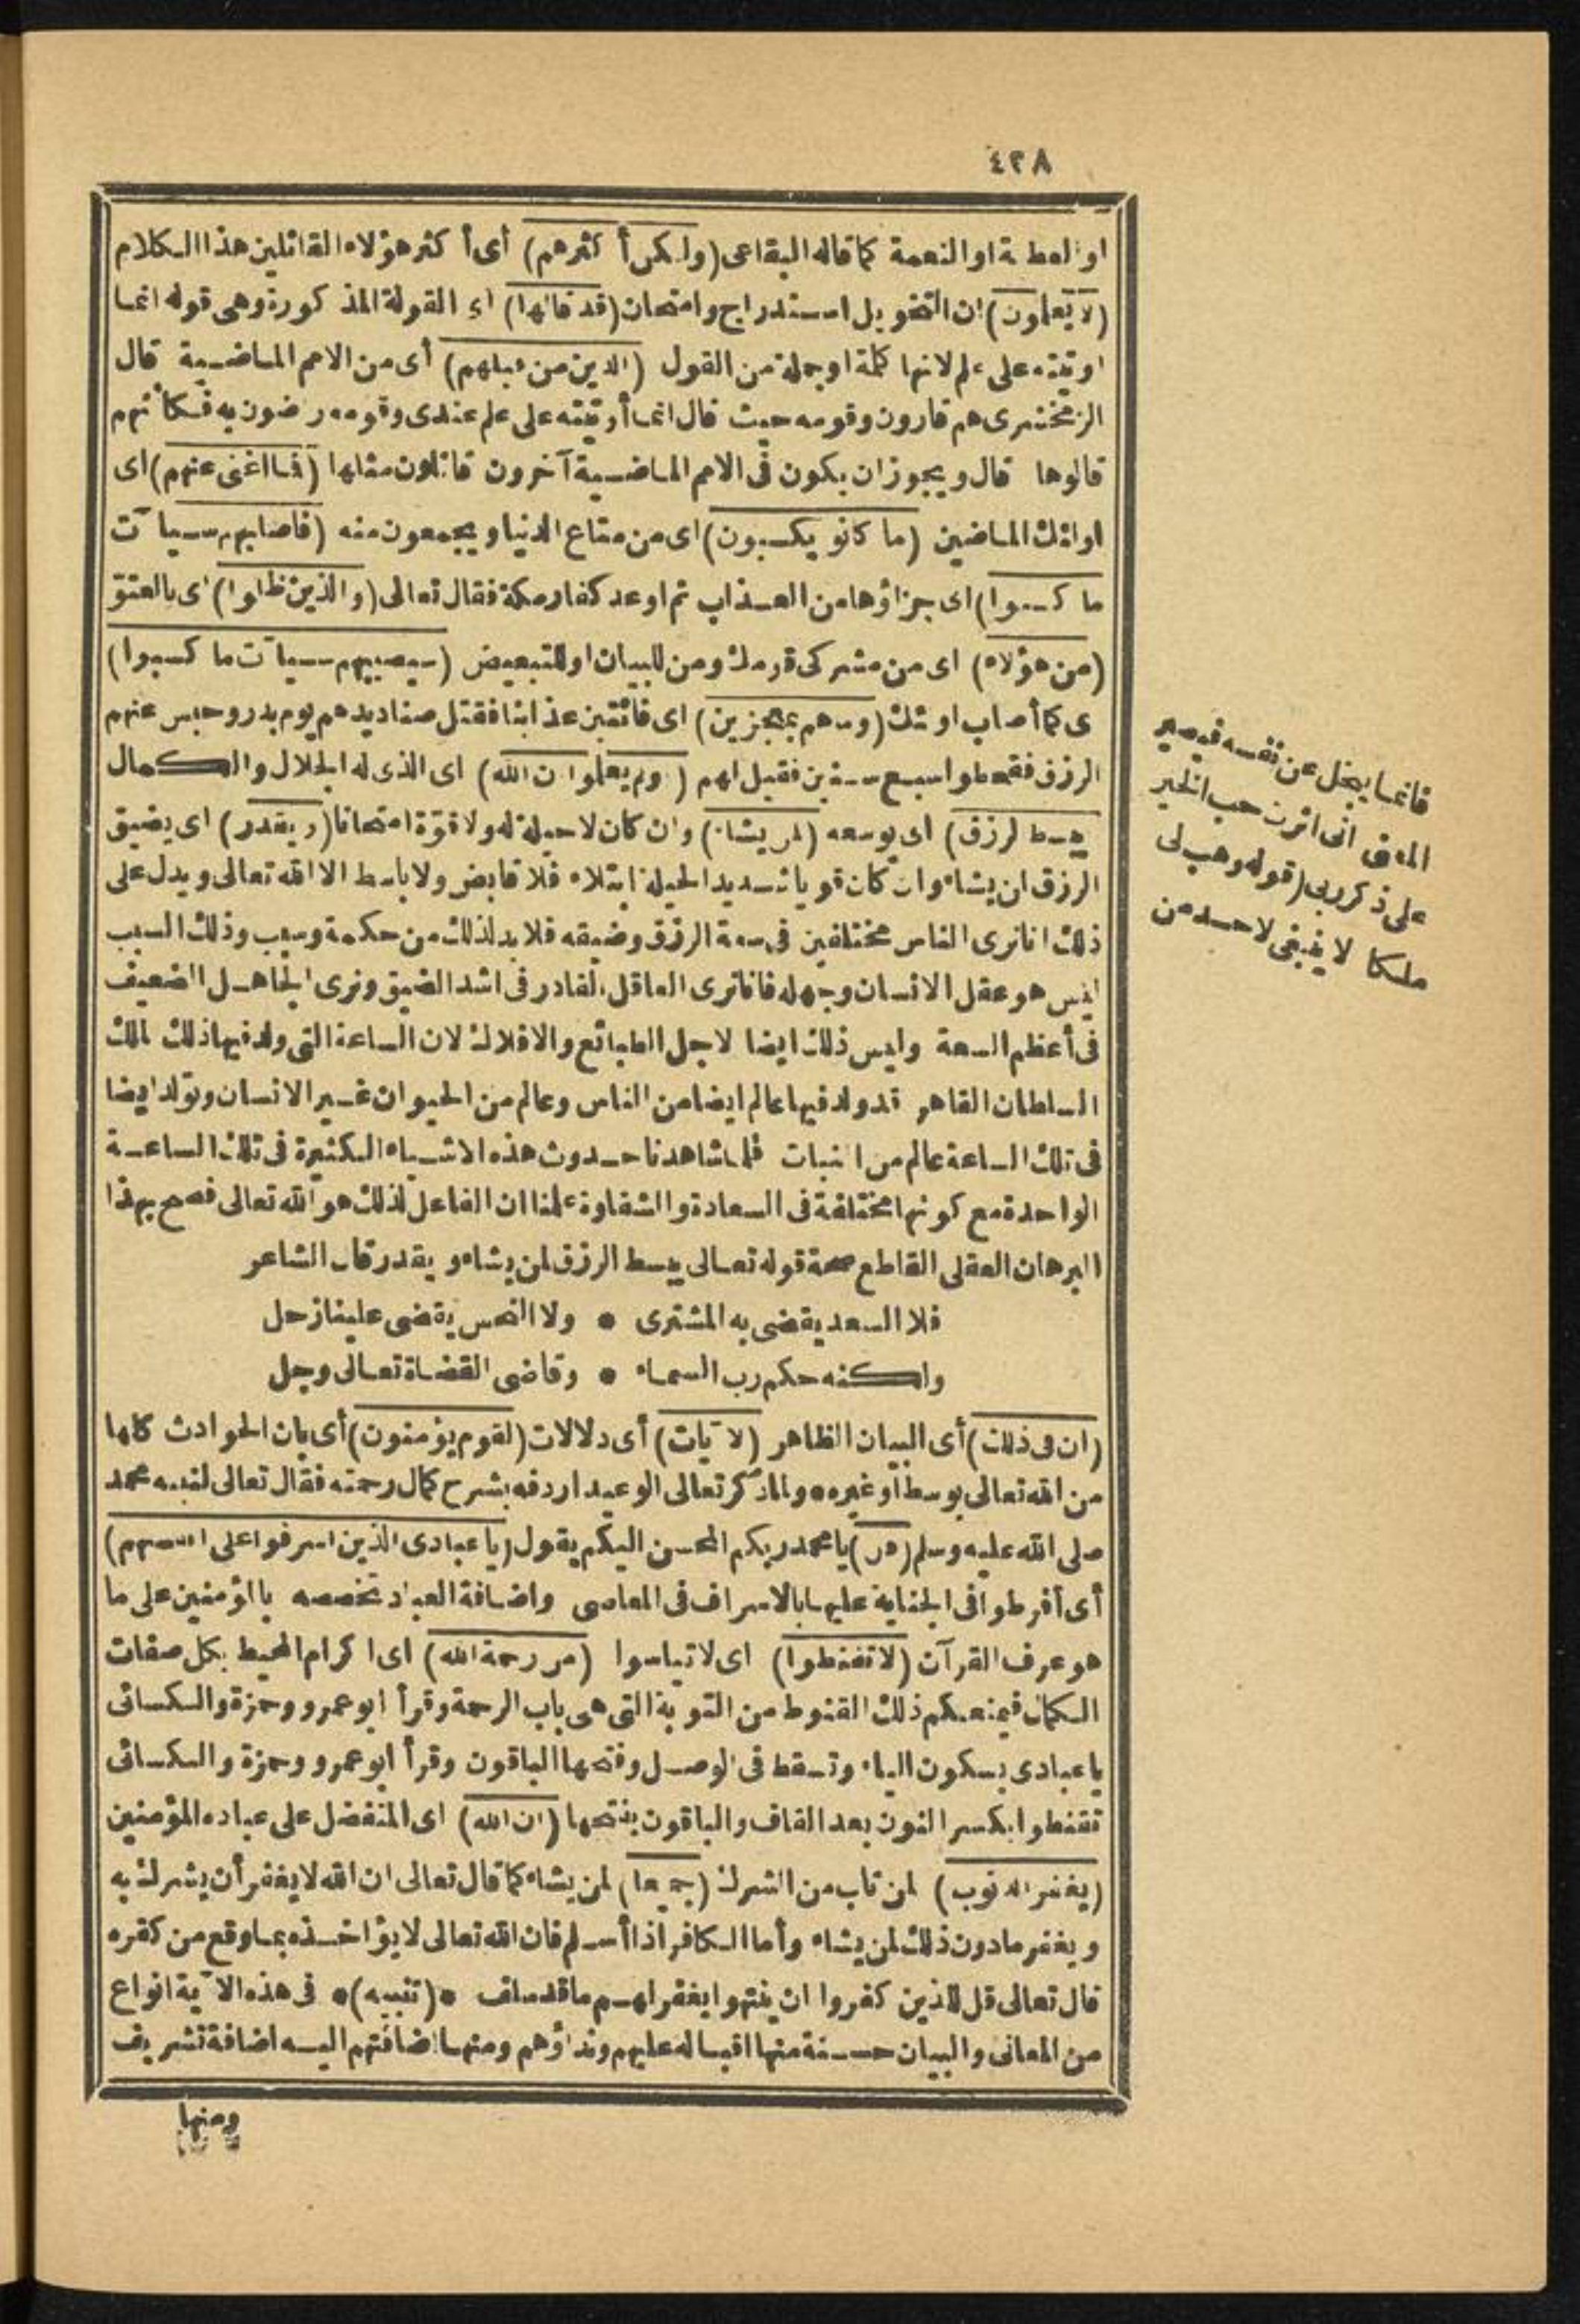 ٤٣٨
او العطية او النعمة كما قاله البقاعى (ولكن أكثرهم) أى أكثر هؤلاء القائلين هذا الكلام
(لا يعلمون) ان التخويل استدراج وامتحان (قد قالها) اى القولة المذكورة وهى قوله انما
اوتيته على علم لانها كلمة او جملة من القول (الذين من قبلهم) أى من الامم الماضية قال
الزمخشرى هم قارون وقومه حيث قال انما أوتيته على علم عندى وقومه راضون به فكأنهم
قالوها قال ويجوز ان يكون فى الامم الماضية آخرون قائلون مثلها (فما اغنى عنهم) اى
اولئك الماضين (ما كانو يكسبون) اى من متاع الدنيا ويجمعون منه (فاصابهم سيآت
ما كسبوا) اى جزاؤها من العذاب ثم اوعد كفار مكة فقال تعالى (والذين ظلموا) اى بالعتو
(من هؤلاء) اى من مشركى قومك ومن للبيان او للتبعيض (سيصيبهم سيآت ما كسبوا)
اى كما أصاب اولئك (وما هم بمعجزين) اى فائتين عذابنا فقتل صناديدهم يوم بدر وحبس عنهم
الرزق فقحطوا سبع سنين فقيل لهم (اولم يعلموا ان الله) اى الذى له الجلال والكمال
(يبسط الرزق) اى يوسعه (لمن يشاء) وان كان لا حيلة له ولا قوة امتحانا (ويقدر) اى يضيق
الرزق ان يشاء وان كان قويا شديد الحيلة ابتلاء فلا قابض ولا باسط الا الله تعالى ويدل على
ذلك انا نرى الناس مختلفين فى سعة الرزق وضيقه فلا بد لذلك من حكمة وسبب وذلك السبب
ليس هو عقل الانسان وجهله فانا نرى العاقل القادر فى اشد الضيق ونرى الجاهل الضعيف
فى أعظم السعة وليس ذلك ايضا لاجل الطبائع والافلاك لان الساعة التى ولد فيها ذلك الملك
السلطان القاهر قد ولد فيها عالم ايضا من الناس وعالم من الحيوان غير الانسان وتولد ايضا
فى تلك الساعة عالم من النبات فلما شاهدنا حدوث هذه الاشياء الكثيرة فى تلك الساعة
الواحدة مع كونها مختلفة فى السعادة والشقاوة علمنا ان الفاعل لذلك هو الله تعالى فصح بهذا
البرهان العقلى القاطع صحة قوله تعالى يبسط الرزق لمن يشاء ويقدر قال الشاعر
فلا السعد يقضى به المشترى * ولا النحس يقضى علينا زحل
ولكنه حكم رب السماء * وقاضى القضاة تعالى وجل
(ان فى ذلك) أى البيان الظاهر (لآيات) أى دلالات (لقوم يؤمنون) أى بان الحوادث كلها
من الله تعالى بوسط أو غيره * ولما ذكر تعالى الوعيد اردفه بشرح كمال رحمته فقال تعالى لنبيه محمد
صلى الله عليه وسلم (قل) يا محمد ربكم المحسن اليكم يقول (يا عبادى الذين اسرفوا على انفسهم)
أى أفرطوا فى الجناية عليها بالاسراف فى المعاصى واضافة العباد تخصصه بالمؤمنين على ما
هو عرف القرآن (لا تقنطوا) اى لا تياسوا (من رحمة الله) اى اكرام المحيط بكل صفات
الكمال فيمنعكم ذلك القنوط من التوبة التى هى باب الرحمة وقرأ ابو عمرو وحمزة والكسائى
يا عبادى بسكون الياء وتسقط فى الوصل وفتحها الباقون وقرأ ابو عمرو وحمزة والكسائى
تقنطوا بكسر النون بعد القاف والباقون بفتحها (ان الله) اى المتفضل على عباده المؤمنين
(يغفر الذنوب) لمن تاب من الشرك (جميعا) لمن يشاء كما قال تعالى ان الله لا يغفر أن يشرك به
ويغفر ما دون ذلك لمن يشاء وأما الكافر اذا أسلم فان الله تعالى لا يؤاخذه بما وقع من كفره
قال تعالى قل للذين كفروا ان ينتهوا يغفر لهم ما قد سلف * (تنبيه) * فى هذه الآية انواع
من المعانى والبيان حسنة منها اقباله عليهم ونداؤهم ومنها اضافتهم اليه اضافة تشريف
ومنها
فانما يبخل عن نفسه فيصير
المعنى انى اثرت حب الخير
على ذكر ربى (قوله وهب لى
ملكا لا ينبغى لاحد من